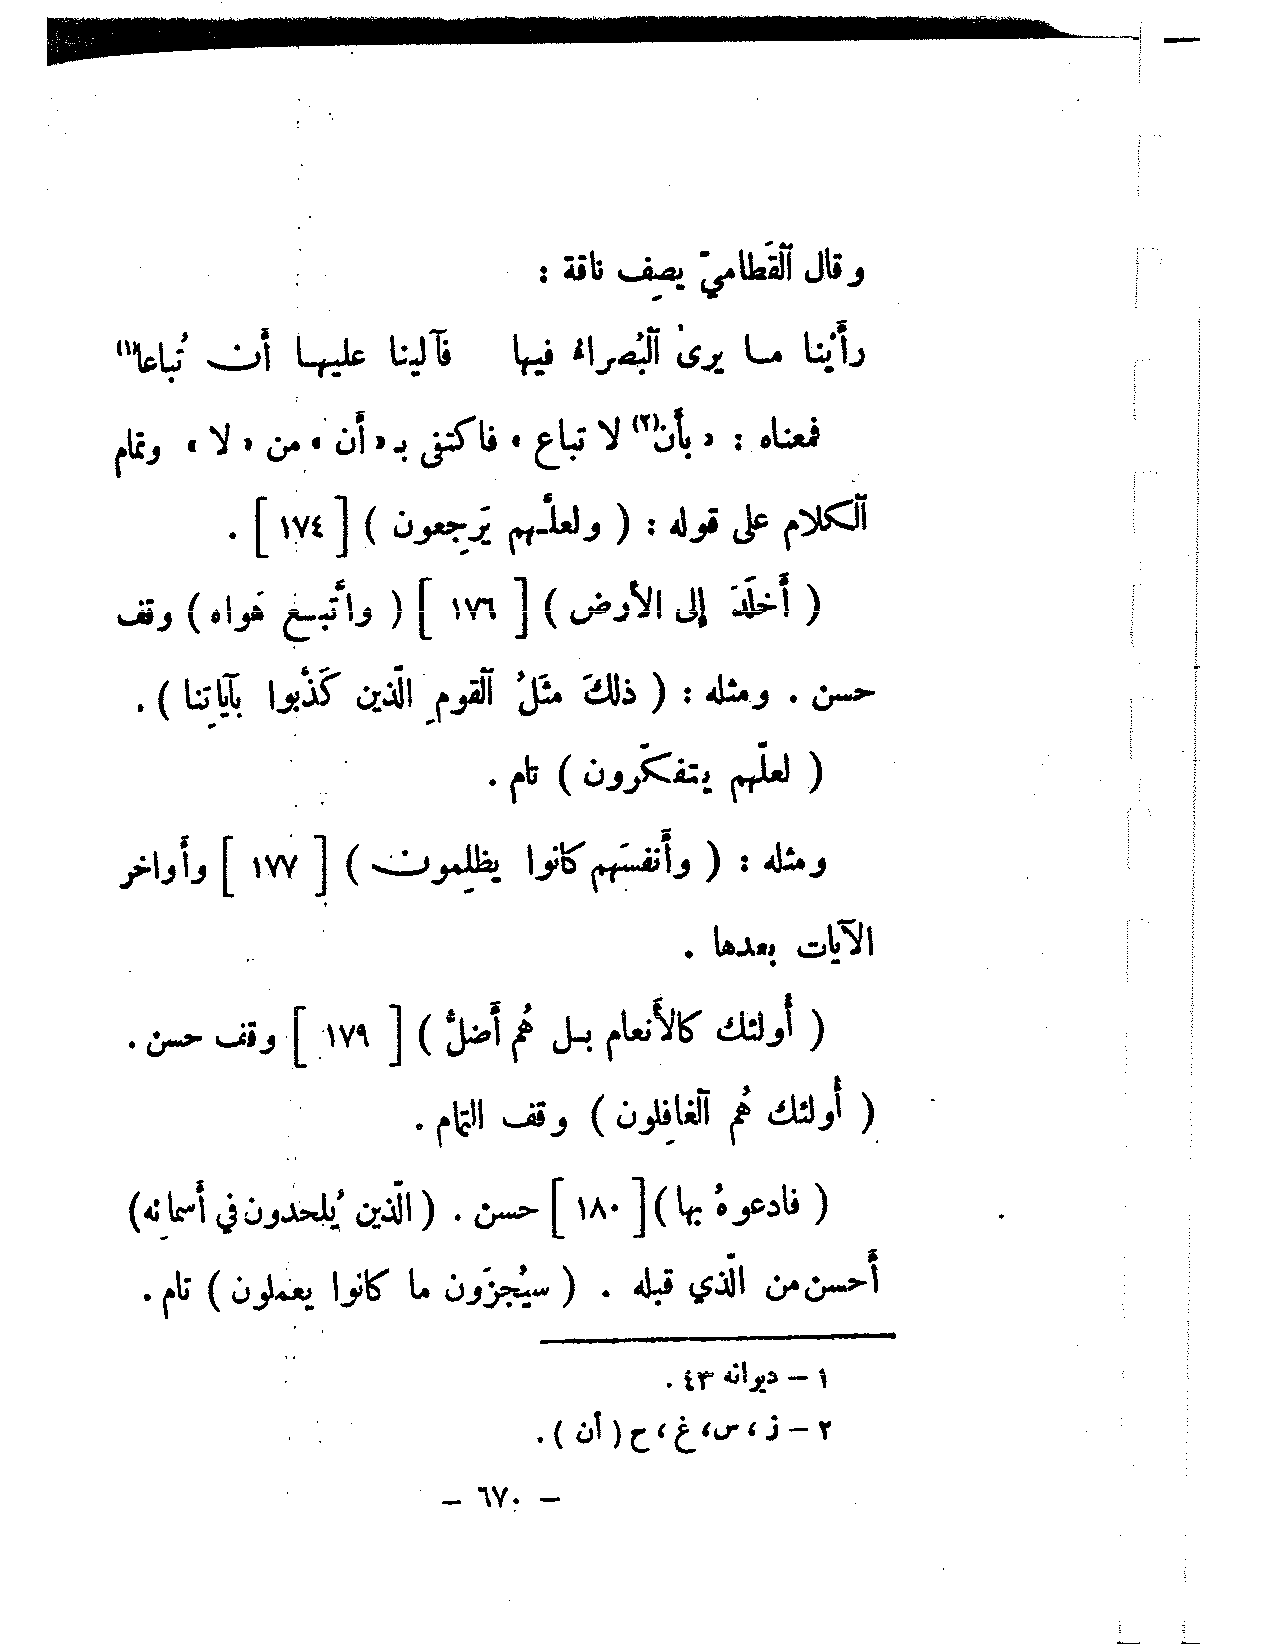 وقال ٱلقَطاميّ يصِف ناقة :
رأَيْنا ما يرىٰ ٱلبُصراءُ فيها   فآلينا عليها أَن تُباعا(١)
فمعناه : « بأَن(٢) لا تباع » فاكتفى بـ « أَن » من « لا » وتمام
ٱلكلام على قوله : ( ولعلَّهم يَرجِعون ) [ ١٧٤ ] .
( أَخلَدَ إلى الأرض ) [ ١٧٦ ] ( واتَّبعَ هَواه ) وقف
حسن . ومثله : ( ذلكَ مثَلُ ٱلقومِ الّذين كَذَّبوا بآياتِنا ) .
( لعلّهم يتفكّرون ) تام .
ومثله : ( وأَنفسَهم كانوا يظلِمون ) [ ١٧٧ ] وأَواخر
الآيات بعدها .
( أُولئك كالأَنعام بل هُم أَضلُّ ) [ ١٧٩ ] وقف حسن .
( أُولئك هُم ٱلغافِلون ) وقف التمام .
( فادعوهُ بها ) [ ١٨٠ ] حسن . ( الّذين يُلحدون في أَسمائِه )
أَحسن من الّذي قبله . ( سيُجزَون ما كانوا يعمَلون ) تام .
١ – ديوانه ٤٣ .
٢ – ز ، س ، غ ، ح ( أن ) .
– ٦٧٠ –